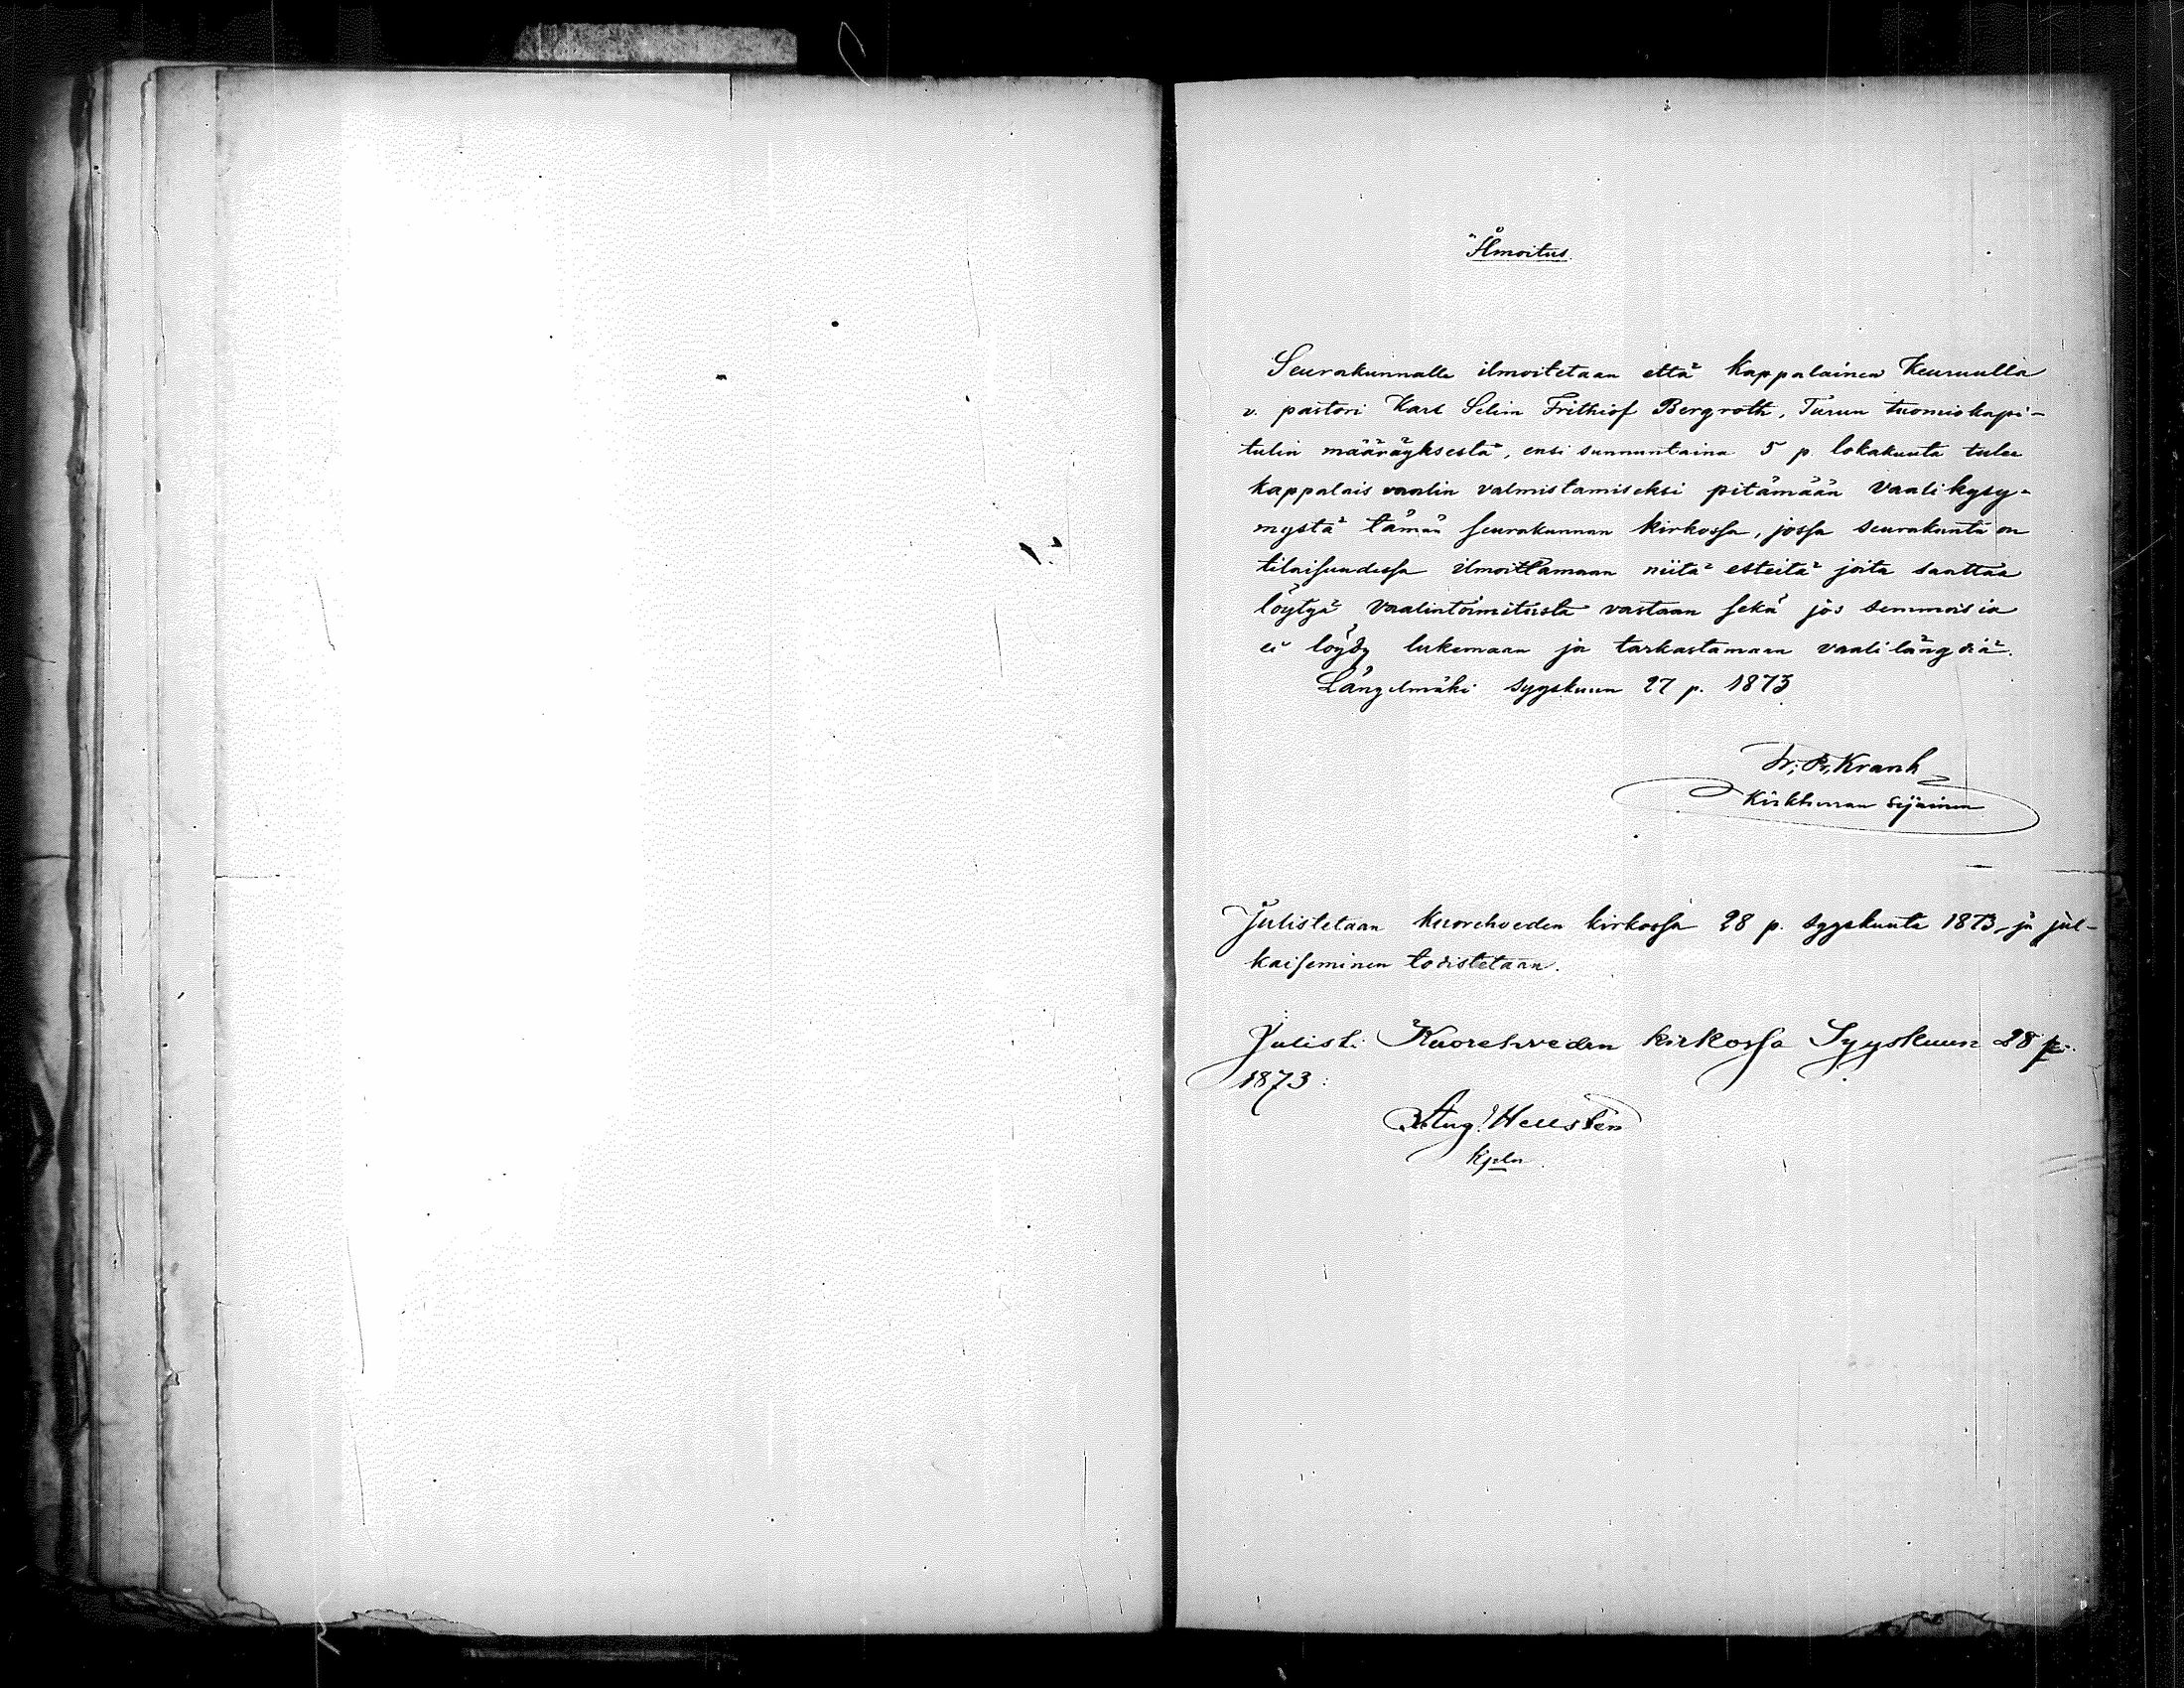 Ilmoitus.
Seurakunnalle ilmoitetaan että kappalainen Keuruulla
v. pastori Karl Selim Frithiof Bergroth, Turun tuomiokapi-
tulin määräyksestä, ensi sunnuntaina 5 p. lokakuuta tulee
kappalais vaalin valmistamiseksi pitämään vaalikysy-
mystä tämän seurakunnan kirkossa, jossa seurakunta on
tilaisuudessa ilmoittamaan niitä esteitä joita saattaa
löytyä vaalintoimitusta vastaan sekä jos semmoisia
ei löydy lukemaan ja tarkastamaan vaalilängdiä.
Längelmäki syyskuun 27 p. 1873.
Kirkherran sijainen
Julistetaan Kuorehveden kirkossa 28 p. syyskuuta 1873 ja jul-
kaiseminen todistetaan.
Julist. Kuorehveden kirkossa Syyskuun 28 p.
1873:
Aug. Hellstén
Kpln.